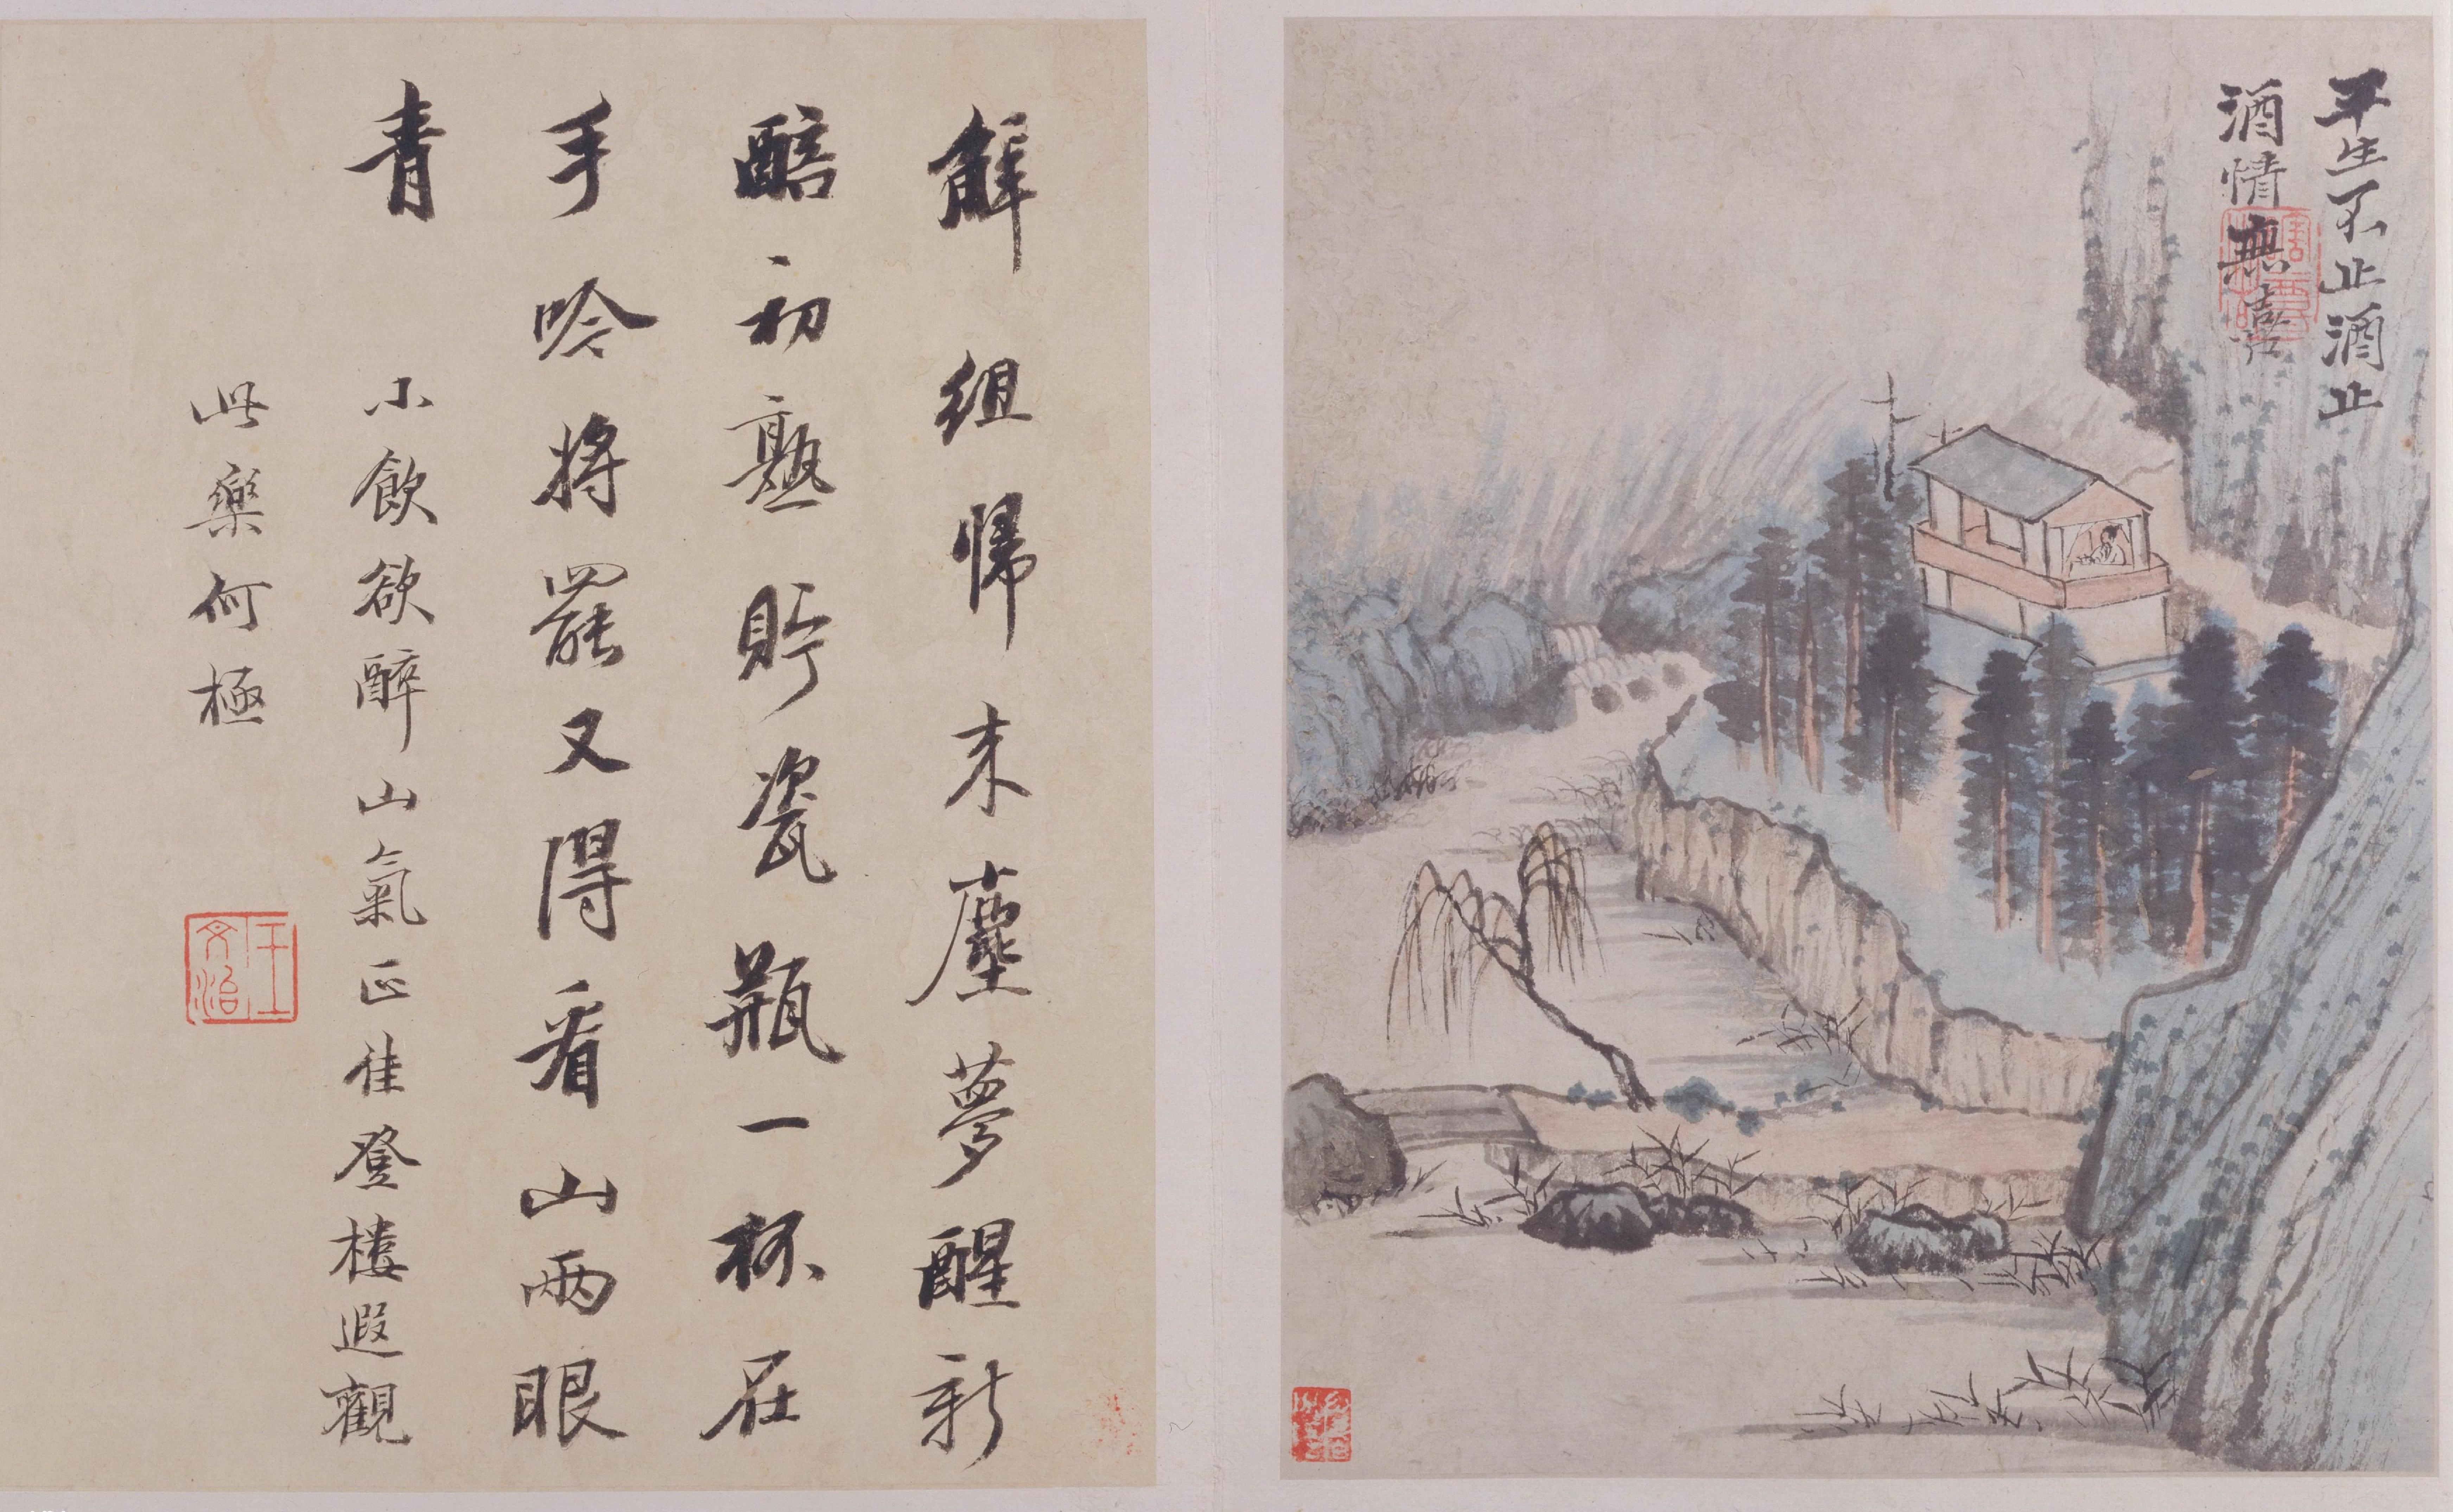 平生不止酒止
酒情無喜
解組帰来塵夢醒新
醅初熟貯瓷瓶一杯在
手吟将罷又得看山兩眼
青
小飲欲醉山氣正佳登樓遐觀
此樂何極
王文治